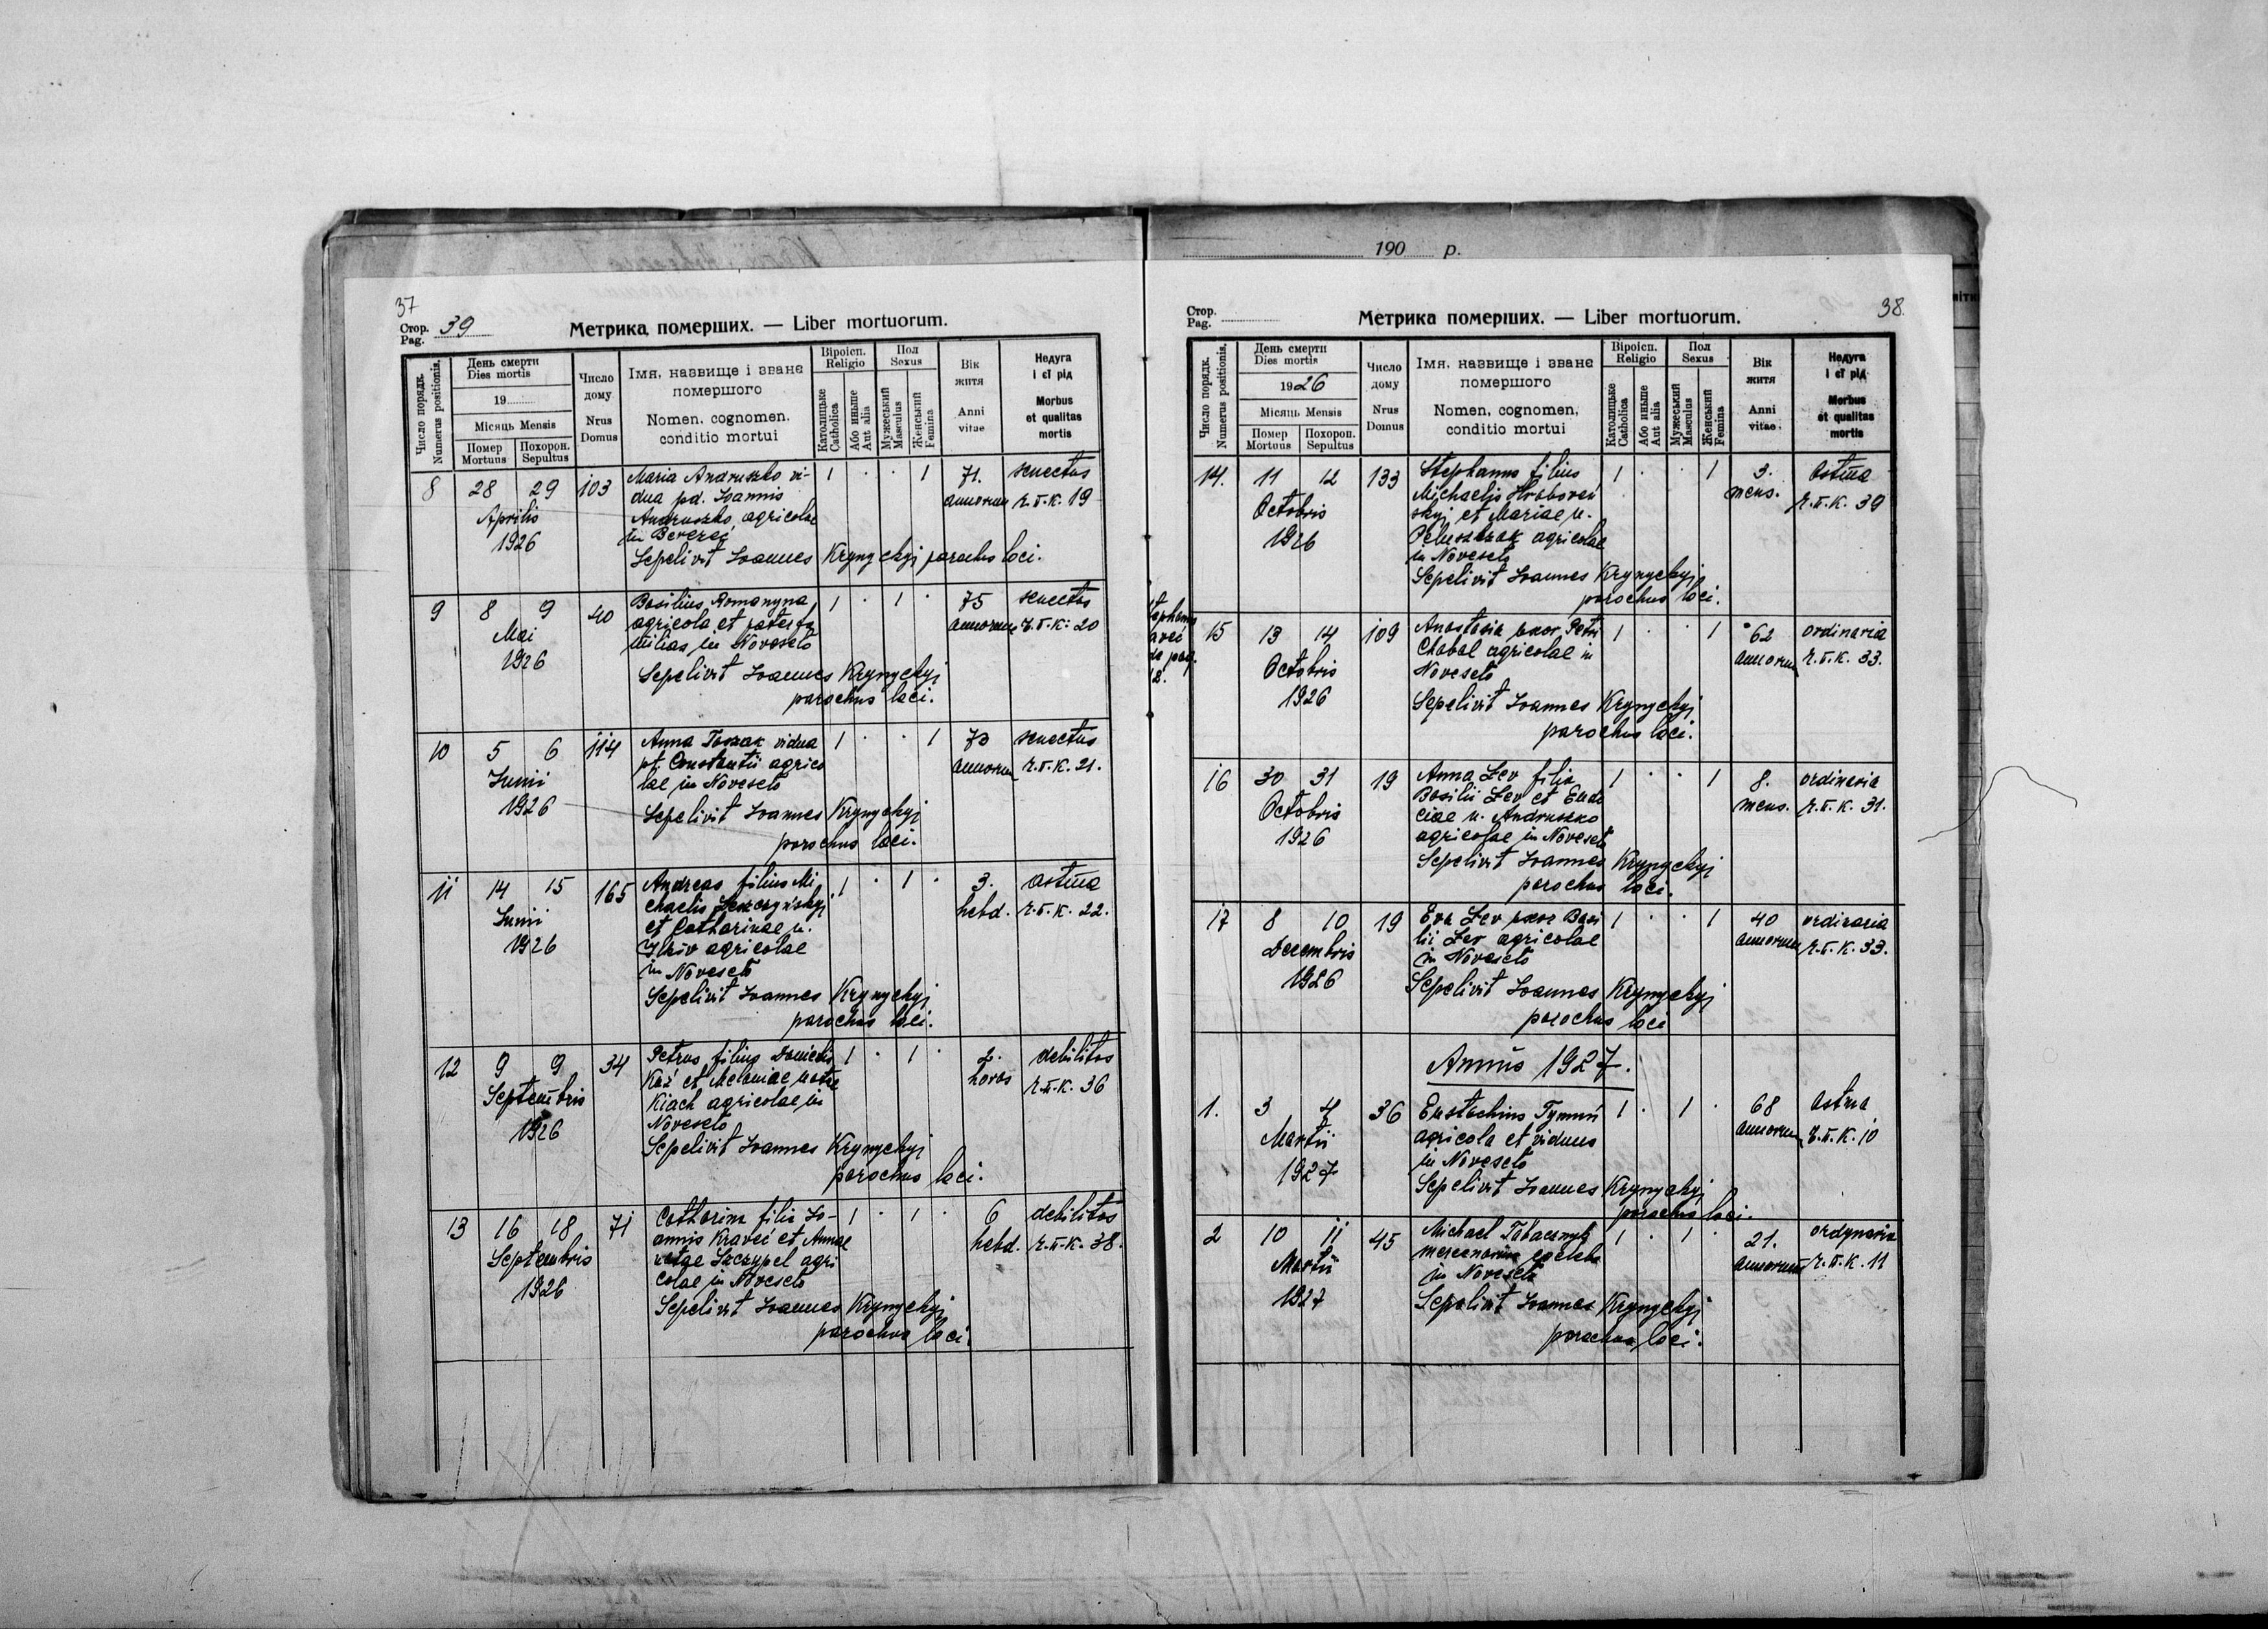 190 р.
37
Стор. Pag. 39
Метрика померших. — Liber mortuorum.
Число порядк. Numerus positionis.
День смерти Dies mortis
19
Місяць Mensis
Помер Mortuus
Похорон. Sepultus
Число дому Nrus Domus
Імя, назвище і зване помершого
Nomen, cognomen, conditio mortui
Віроісп. Religio
Католицьке Catholica
Або иньше Aut alia
Пол Sexus
Мужеський Masculus
Женський Femina
Вік житя Anni vitae
Недуга і єї рід
Morbus et qualitas mortis
8 28 29 Aprilis 1926 103
Maria Andruszko vi-
dua pd. Ioannis
Andruszko agricolae
in
1 . . 1 71. annorum senectus r.t.k. 19
Sepelivit Ioannes Krynyckyj parochus loci.
9 8 9 Mai 1926 40
Basilius Romanyna
agricola et pater fa
milias in Noveselo
1 . 1 . 75 annorum senectus r.t.k. 20
Sepelivit Ioannes Krynyckyj
parochus loci.
10 5 6 Junii 1926 114
Anna Toszak vidua
pt Constantii agrico
lae in Noveselo
1 . . 1 73 annorum senectus r.t.k. 21.
Sepelivit Ioannes Krynyckyj
parochus loci.
11 14 15 Junii 1926 165
Andreas filius Mi
chaelis
et Catharinae n.
agricolae
in Noveselo
1 . 1 . 3. hebd. astma r.t.k. 22.
Sepelivit Ioannes Krynyckyj
parochus loci.
12 9 9 Septembris 1926 34
Petrus filius Danielis
et Melaniae natae
Kiach agricolae in
Noveselo
1 . 1 . 2. horas debilitas r.t.k. 36
Sepelivit Ioannes Krynyckyj
parochus loci.
13 16 18 Septembris 1926 71
Catharina filia Io-
annis Kraveć et Annae
natae agri
colae in Noveselo
1 . 1 . 6 hebd. debilitas r.t.k. 38.
Sepelivit Ioannes Krynyckyj
parochus loci.
38.
Стор. Pag.
Метрика померших. — Liber mortuorum.
Число порядк. Numerus positionis.
День смерти Dies mortis
1926
Місяць Mensis
Помер Mortuus
Похорон. Sepultus
Число дому Nrus Domus
Імя, назвище і зване помершого
Nomen, cognomen, conditio mortui
Віроісп. Religio
Католицьке Catholica
Або иньше Aut alia
Пол Sexus
Мужеський Masculus
Женський Femina
Вік житя Anni vitae
Недуга і єї рід
Morbus et qualitas mortis
14. 11 12 Octobris 1926 133
Stephanus filius
Michaelis Hraboveć
skyj et Mariae n.
agricolae
in Noveselo
1 . . 1 3. mens. astma r.t.k. 39
Sepelivit Ioannes Krynyckyj
parochus loci.
15 13 14 Octobris 1926 109
Anastasia uxor Petri
Chabal agricolae in
Noveselo
1 . . 1 62 annorum ordinaria r.t.k. 33.
Sepelivit Ioannes Krynyckyj
parochus loci.
16 30 31 Octobris 1926 19
Anna Lev filia
Basilii Lev et Eudo
ciae n. Andruszko
agricolae in Noveselo
1 . . 1 8. mens. ordinaria r.t.k. 31.
Sepelivit Ioannes Krynyckyj
parochus loci.
17 8 10 Decembris 1926 19
Eva Lev uxor Basi
lii Lev agricolae
in Noveselo
1 . . 1 40 annorum ordinaria r.t.k. 33.
Sepelivit Ioannes Krynyckyj
parochus loci
Annus 1927.
1. 3 4 Martii 1927 36
Eustachius Tymuś
agricola et viduus
in Noveselo
1 . 1 . 68 annorum astma r.t.k. 10
Sepelivit Ioannes Krynyckyj
parochus loci.
2 10 11 Martii 1927 45
Michael Tabacznyk
mercenarius caelebs
in Noveselo
1 . 1 . 21. annorum ordynaria r.t.k. 11
Sepelivit Ioannes Krynyckyj
parochus loci.